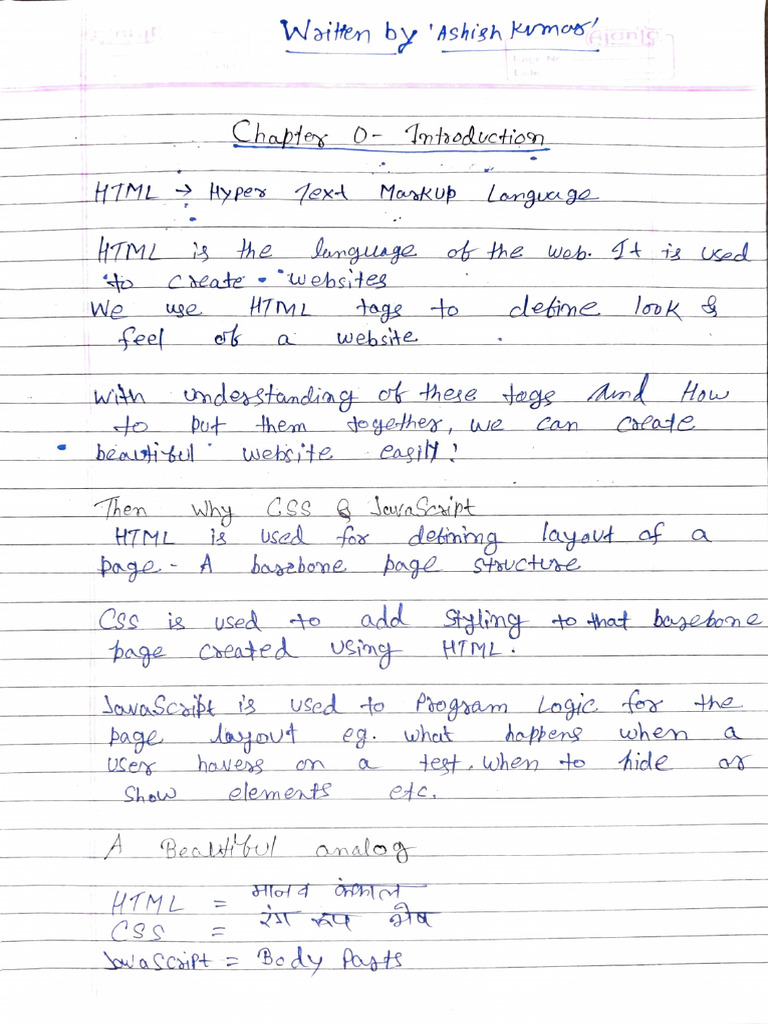 Written by 'Ashish Kumar'
Chapter 0- Introduction
HTML → Hyper Text Markup Language
HTML is the language of the web. It is used
to create websites
We use HTML tags to define look &
feel of a website
with understanding of these tags and How
to put them together, we can create
beautiful website easily!
Then Why CSS & JavaScript
HTML is used for defining layout of a
page - A barebone page structure
CSS is used to add styling to that barebone
page created using HTML.
JavaScript is used to Program Logic for the
page layout eg. what happens when a
user havers on a test, when to hide or
show elements etc.
A Beautiful analog
HTML = मानव कंकाल
CSS = रंग रूप भेष
JavaScript = Body Parts